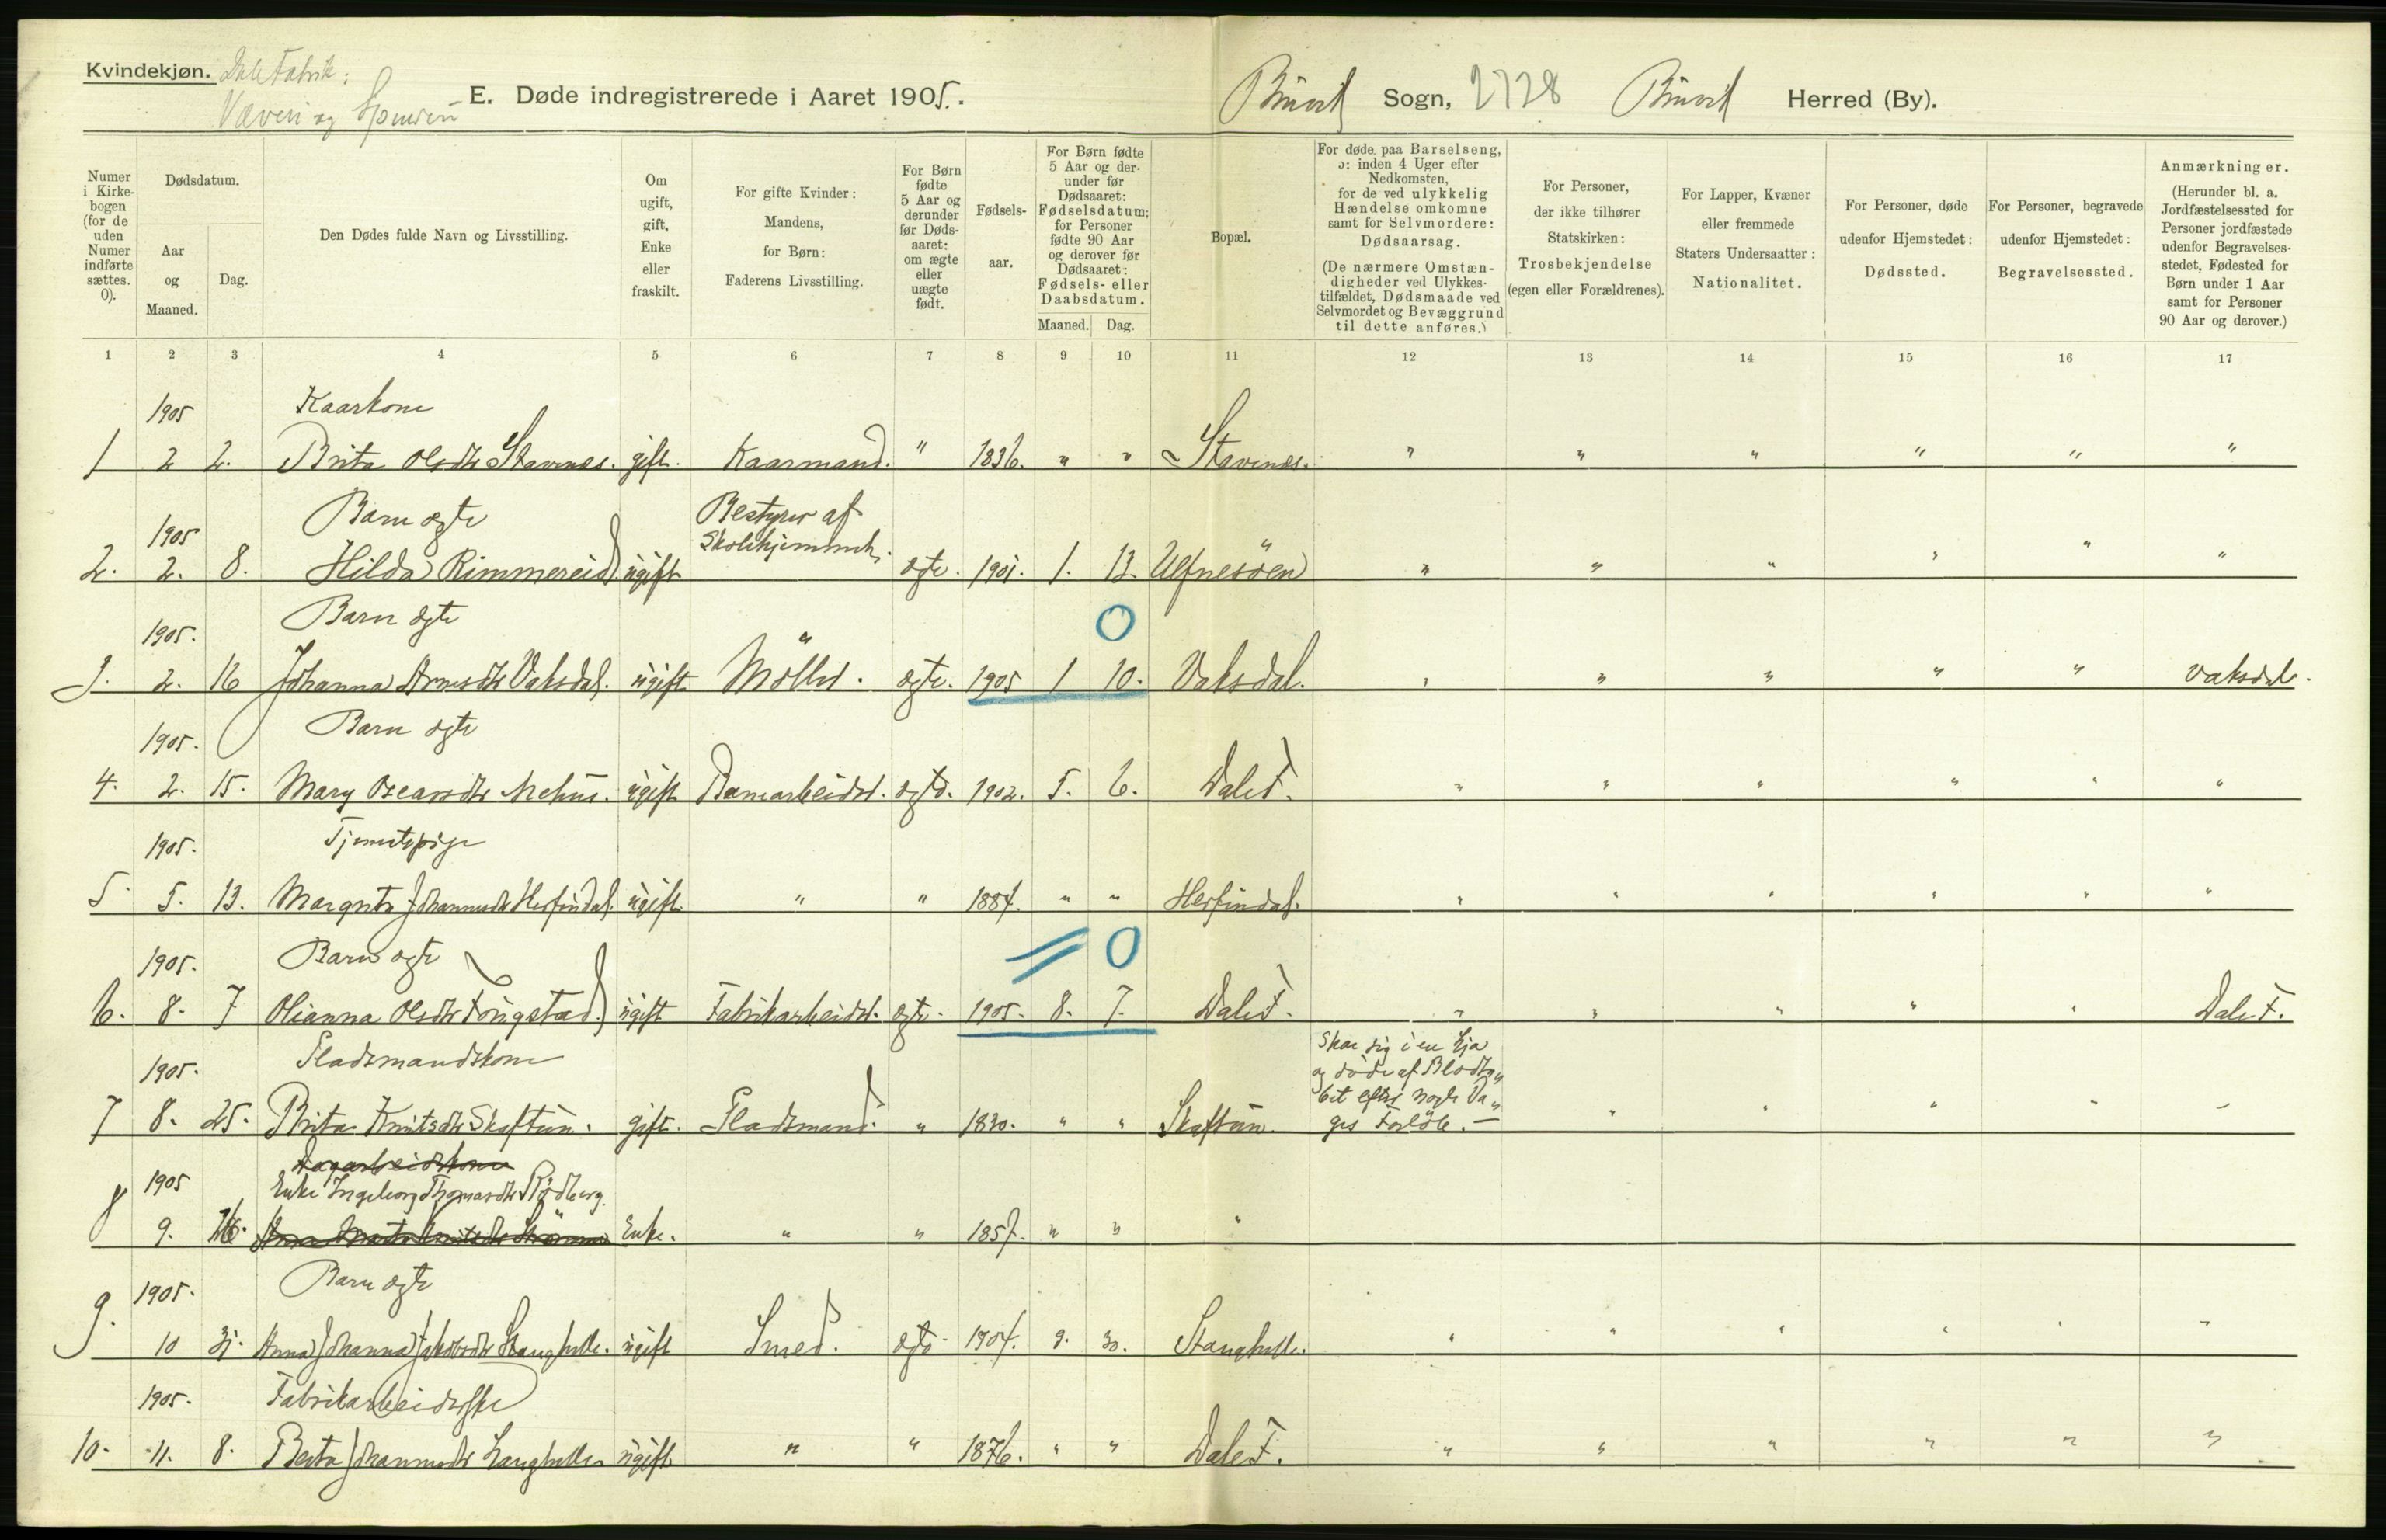 Kvindekjøn. Dale Fabrik:
Væveri og Spinderi
E. Døde indregistrerede i Aaret 1905.
Bruvik Sogn, 2728 Bruvik Herred (By).
Numer i Kirke-bogen (for de uden Numer indførte sættes. 0).
Dødsdatum.
Aar og Maaned.
Dag.
Den Dødes fulde Navn og Livsstilling.
Om ugift, gift, Enke eller fraskilt.
For gifte Kvinder: Mandens, for Børn: Faderens Livsstilling.
For Børn fødte 5 Aar og derunder før Døds-aaret: om ægte eller uægte født.
Fødsels-aar.
For Børn fødte 5 Aar og der-under før Dødsaaret: Fødselsdatum; for Personer fødte 90 Aar og derover før Dødsaaret: Fødsels- eller Daabsdatum.
Maaned. Dag.
Bopæl.
For døde paa Barselseng, ɔ: inden 4 Uger efter Nedkomsten, for de ved ulykkelig Hændelse omkomne samt for Selvmordere: Dødsaarsag.
(De nærmere Omstæn-digheder ved Ulykkes-tilfældet, Dødsmaade ved Selvmordet og Bevæggrund til dette anføres.)
For Personer, der ikke tilhører Statskirken: Trosbekjendelse (egen eller Forældrenes).
For Lapper, Kvæner eller fremmede Staters Undersaatter: Nationalitet.
For Personer, døde udenfor Hjemstedet: Dødssted.
For Personer, begravede udenfor Hjemstedet: Begravelsessted.
Anmærkninger.
(Herunder bl. a. Jordfæstelsessted for Personer jordfæstede udenfor Begravelses-stedet, Fødested for Børn under 1 Aar samt for Personer 90 Aar og derover.)
1 2 3 4 5 6 7 8 9 10 11 12 13 14 15 16 17
1905 Kaarkone
1 2 2. Brita Olsdtr Stavenes. gift. Kaarmand. " 1836. " " Stavenes. " " " " " "
1905 Barn ægte Bestyrer af Skolehjemmet,
2. 2. 8. Hilda Rimmereid. ugift ægte. 1901. 1. 13. Ulfnesöen " " " " " "
1905. Barn ægte 0
3. 2. 16 Johanna Arnesdtr Vaksdal. ugift Möller. ægte. 1905 1 10. Vaksdal. " " " " " Vaksdal.
1905. Barn ægte
4. 2. 15. Mary Oscarsdtr Mehus. ugift Banearbeider. ægte. 1902. 5. 6. Dale F. " " " " " "
1905. Tjenestepige
5. 5. 13. Margreta Johannesdtr Herfindal. ugift " " 1884. " " Herfindal. " " " " " "
1905. Barn ægte 0
6. 8. 7 Olianna Olsdtr Fougstad. ugift Fabrikarbeider. ægte. 1905. 8. 7. Dale F. " " " " " Dale F.
1905. Pladsmandskone Skar sig i en Lja
og döde af Blodta
7 8. 25. Brita Knutsdtr Skaftun. gift. Pladsmand. " 1830. " " Skaftun. bet efter nogle Da
ges Forlöb. — " " " " "
Dagarbeiderkone
1905 Enke Ingeborg Thomasdtr Rödberg.
8 9. Enke. " " 1857. " " "
1905. Barn ægte
9. 10 31. Anna Johanna Jakobsdtr Stanghelle. ugift Smed. ægte 1904. 9. 30. Stanghelle. " " " " " "
1905. Fabrikarbeiderske
10. 11. 8. Berta Johannesdtr Langhelle ugift " " 1876. " " Dale F. " " " " " "